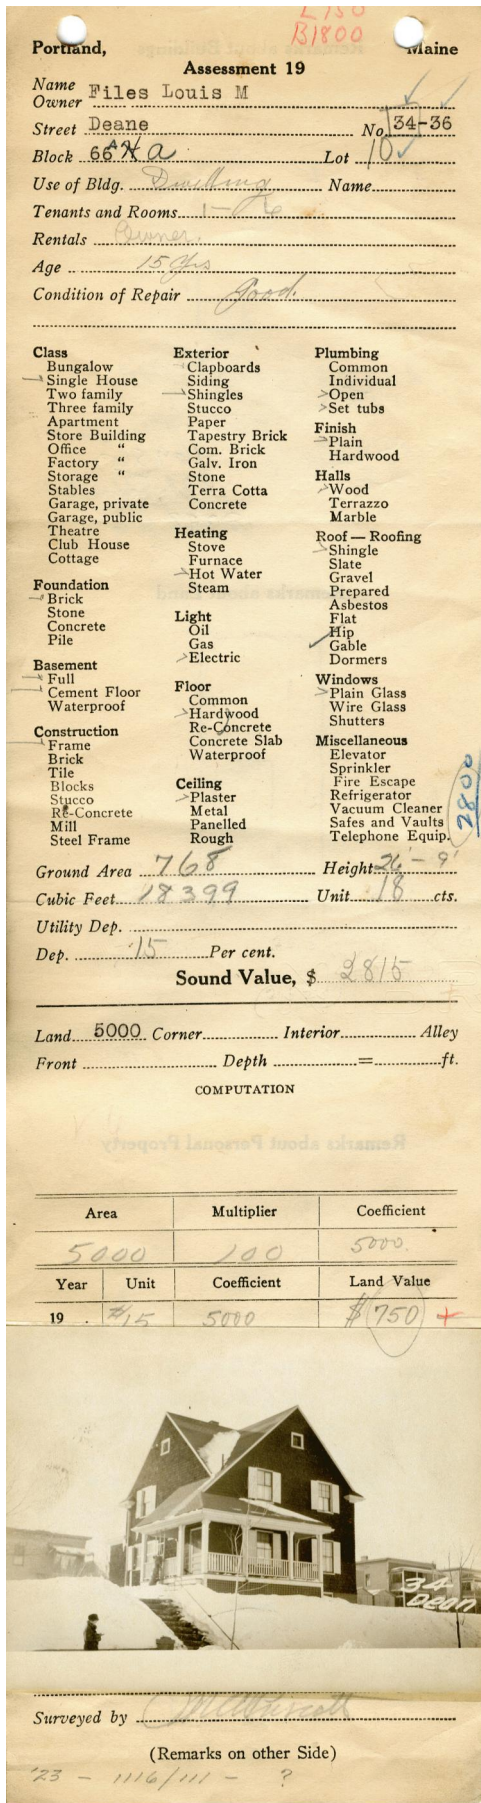 L750
B1800
Portland, Maine
Assessment 19
Name
Owner Files Louis M
Street Deane No. 34-36
Block 66 A a Lot 10
Use of Bldg. Dwelling Name
Tenants and Rooms 1 - 6
Rentals Owner.
Age 15 yrs
Condition of Repair Good.
Class
Bungalow
Single House
Two family
Three family
Apartment
Store Building
Office "
Factory "
Storage "
Stables
Garage, private
Garage, public
Theatre
Club House
Cottage
Foundation
Brick
Stone
Concrete
Pile
Basement
Full
Cement Floor
Waterproof
Construction
Frame
Brick
Tile
Blocks
Stucco
Re-Concrete
Mill
Steel Frame
Exterior
Clapboards
Siding
Shingles
Stucco
Paper
Tapestry Brick
Com. Brick
Galv. Iron
Stone
Terra Cotta
Concrete
Heating
Stove
Furnace
Hot Water
Steam
Light
Oil
Gas
Electric
Floor
Common
Hardwood
Re-Concrete
Concrete Slab
Waterproof
Ceiling
Plaster
Metal
Panelled
Rough
Plumbing
Common
Individual
Open
Set tubs
Finish
Plain
Hardwood
Halls
Wood
Terrazzo
Marble
Roof — Roofing
Shingle
Slate
Gravel
Prepared
Asbestos
Flat
Hip
Gable
Dormers
Windows
Plain Glass
Wire Glass
Shutters
Miscellaneous
Elevator
Sprinkler
Fire Escape
Refrigerator
Vacuum Cleaner
Safes and Vaults
Telephone Equip.
2800
Ground Area 768 Height 26' - 9'
Cubic Feet 18399 Unit 18 cts.
Utility Dep.
Dep. 15 Per cent.
Sound Value, $ 2815
Land 5000 Corner Interior Alley
Front Depth = ft.
COMPUTATION
Remarks about Personal Property
Area Multiplier Coefficient
5000 100 5000.
Year Unit Coefficient Land Value
19 . #15 5000 $750 +
34
Dean
Surveyed by
(Remarks on other Side)
'23 - 1116/111 - ?